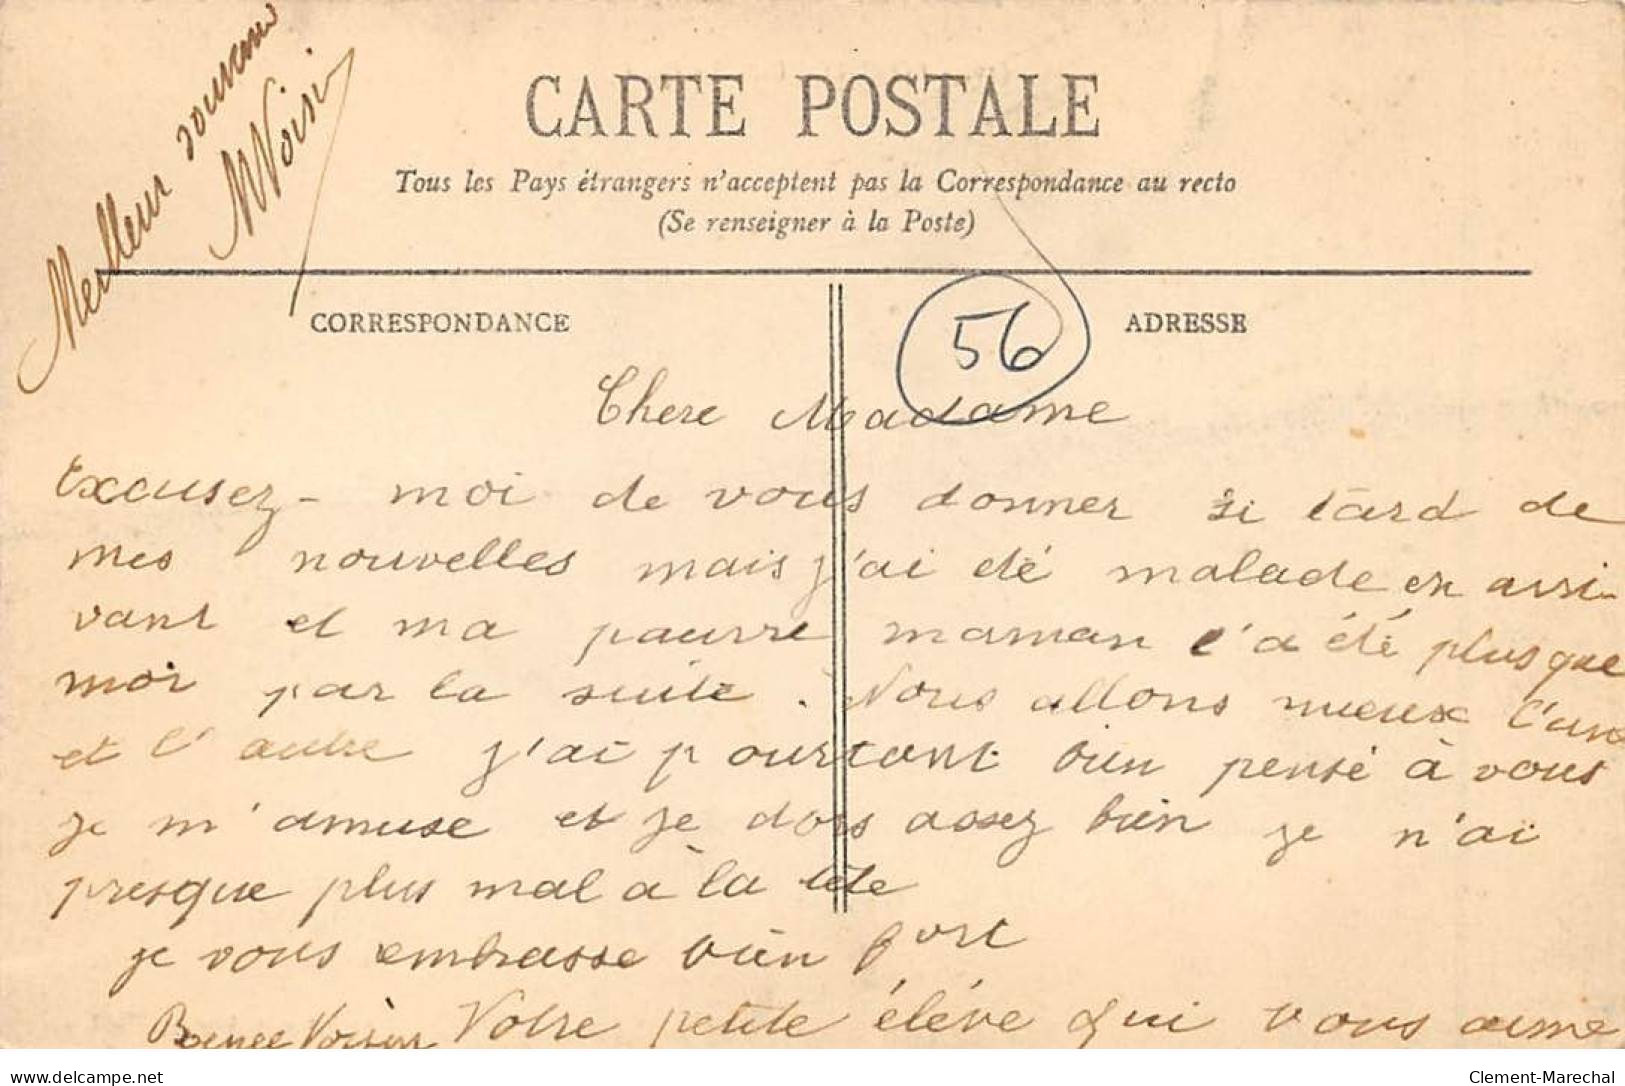 Meilleur souvenir
M Voisin
CARTE POSTALE
Tous les Pays étrangers n'acceptent pas la Correspondance au recto
(Se renseigner à la Poste)
CORRESPONDANCE
56
ADRESSE
Chere Madame
Excusez-moi de vous donner si tard de
mes nouvelles mais j'ai été malade en arri-
vant et ma pauvre maman l'a été plus que
moi par la suite. Nous allons mieux l'une
et l'autre j'ai pourtant bien pensé à vous
je m'amuse et je dors assez bien je n'ai
presque plus mal à la tête
je vous embrasse bien fort
Votre petite éléve qui vous aime
Renée Voisin
Clement-Marechal
www.delcampe.net